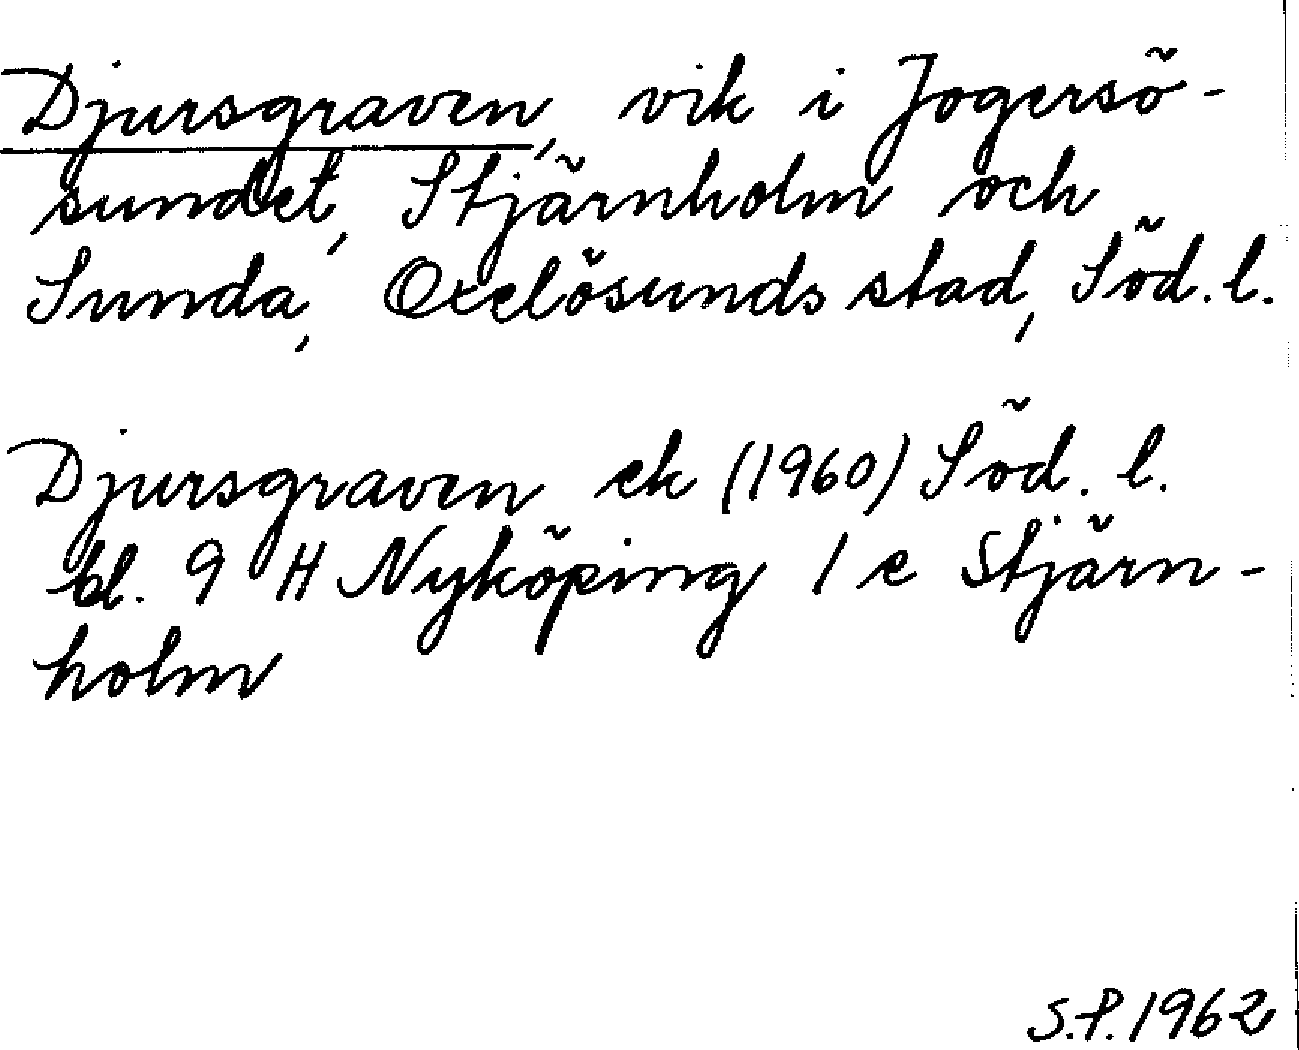 Djursgraven, vik i Jogersö-
sundet, Stjärnholm och
Sunda, Oxelösunds stad, Söd. l.
Djursgraven ek (1960) Söd. l.
bl. 9 H Nyköping 1 e Stjärn-
holm
S.P. 1962